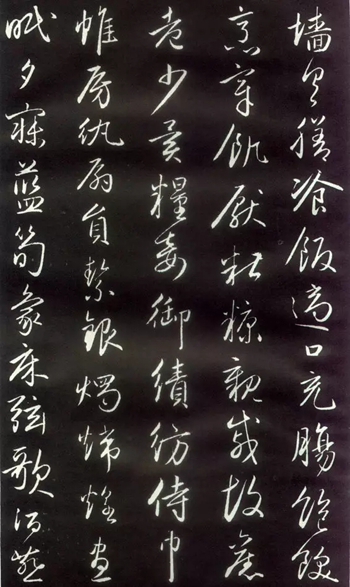 墻具膳飡飯適口充腸飽飫
烹宰飢厭糟糠親戚故舊
老少異糧妾御績紡侍巾
帷房紈扇員絜銀燭煒煌晝
眠夕寐藍筍象床弦歌酒讌